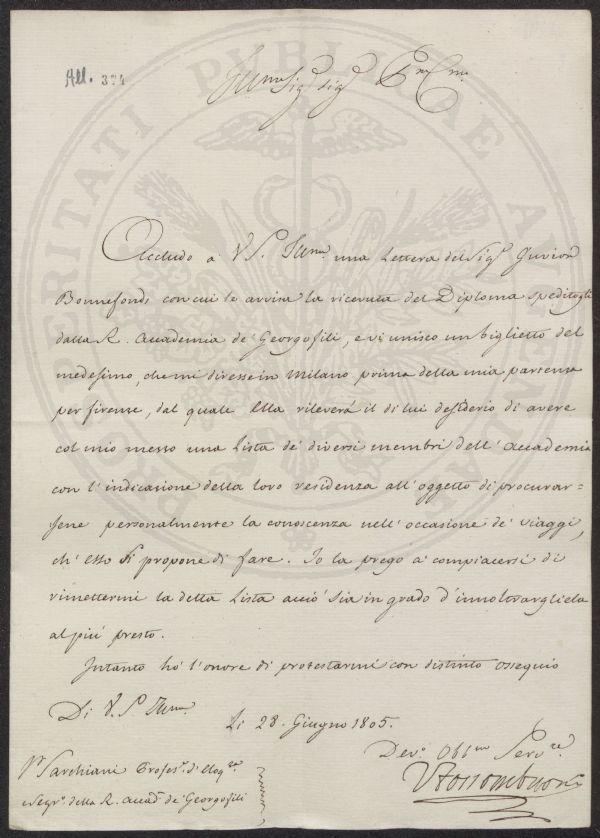 All. 374
PROSPERITATI PUBLICAE AUGENDAE
Illmo Sig.e Sig.e Pne Cmo
Accludo a V.S. Illma una Lettera del Sig.e Guvion
Bonnefonds con cui le avvisa la ricevuta del Diploma speditogli
dalla R. Accademia de' Georgofili, e vi unisco un biglietto del
medesimo, che mi diresse in Milano prima della mia partenza
per firenze, dal quale Ella rileverà il di lui desiderio di avere
col mio mezzo una Lista de' diversi membri dell' Accademia
con l' indicazione della loro residenza all' oggetto di procurar=
sene personalmente la conoscenza nell' occasione de' viaggi,
ch' esso si propone di fare. Io la prego a compiacersi di
rimettermi la detta Lista acciò sia in grado d' innoltrargliela
al più presto.
Intanto hò l' onore di protestarmi con distinto ossequio
Di V.S. Illma
Li 28. Giugno 1805.
Dev.o Obbmo Serv.re
VFossombroni
Sr Sarchiani Profes.e d' Eloq.za
e Segr.o della R. Accad.a de' Georgofili